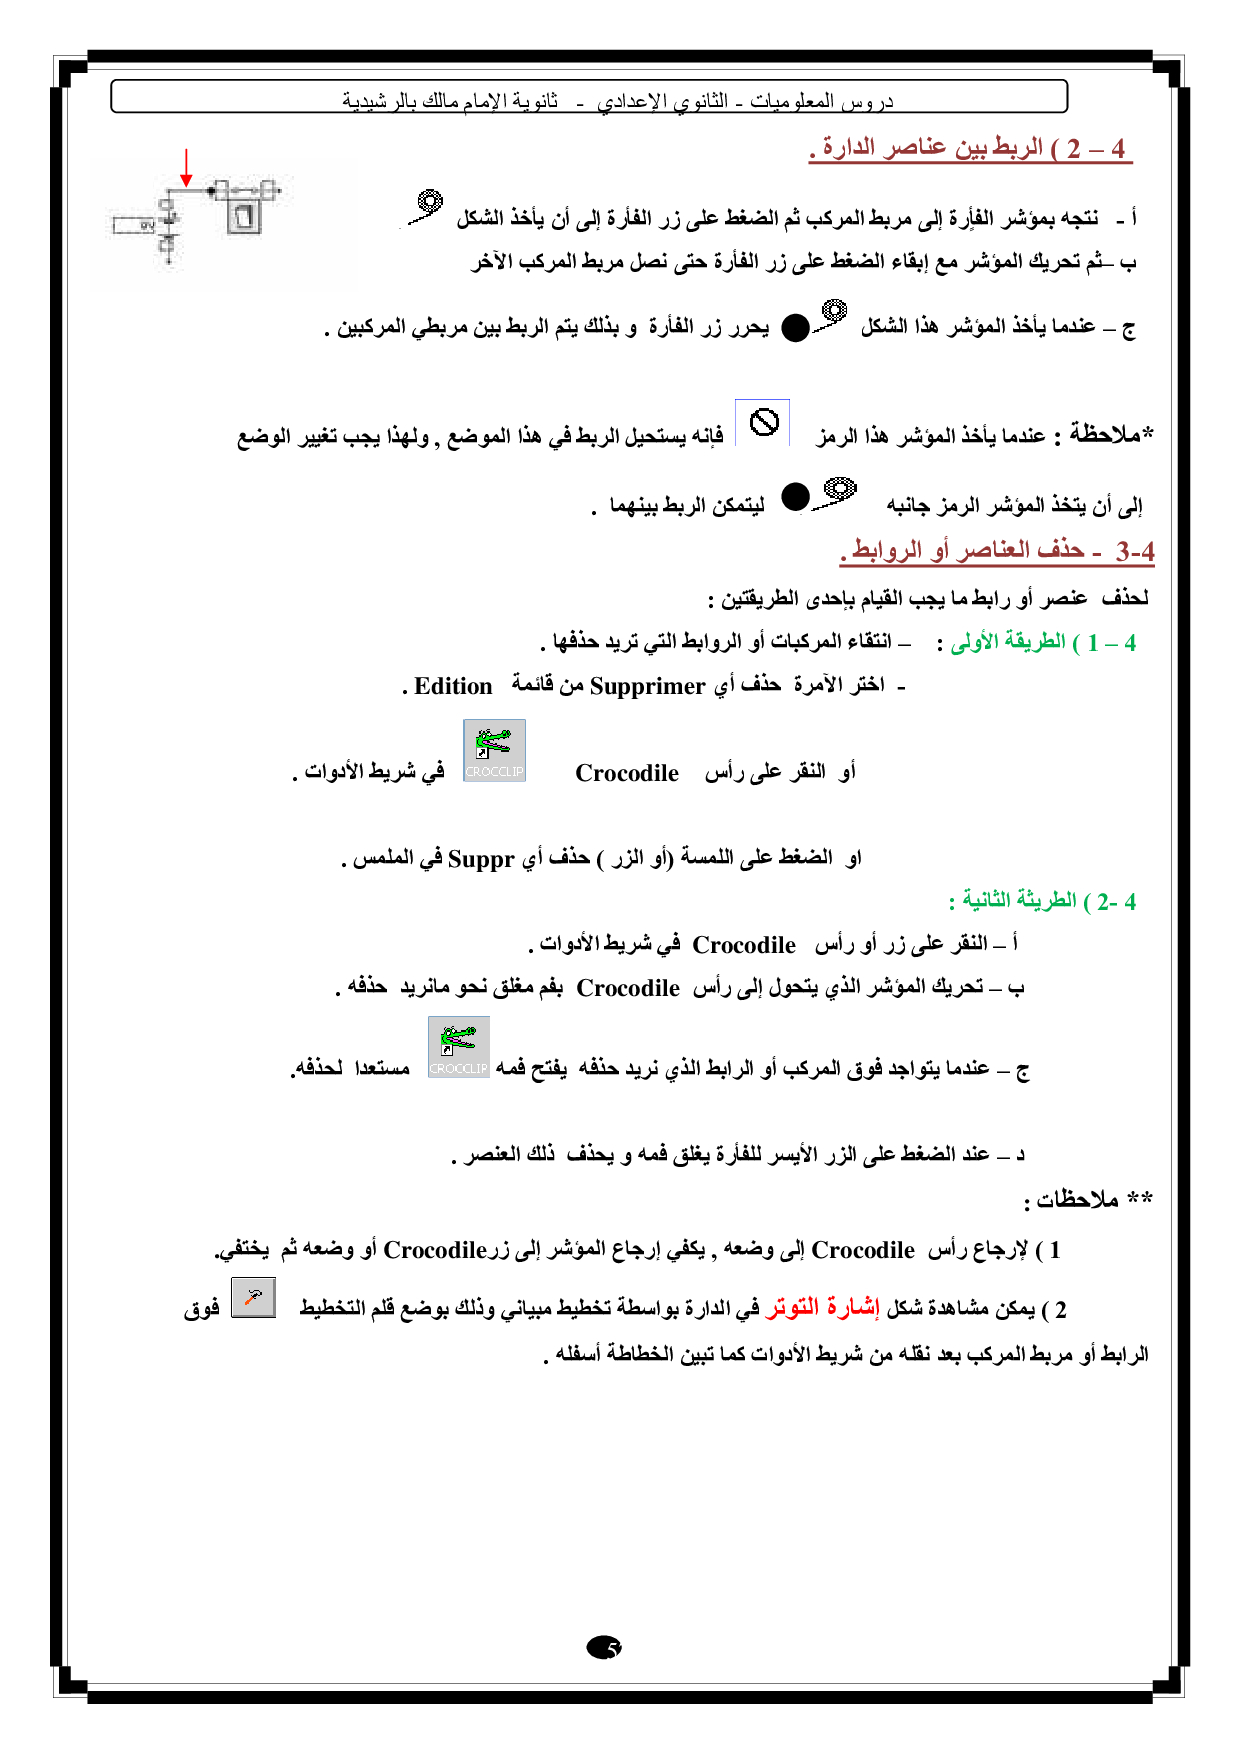 دروس المعلوميات - الثانوي الإعدادي - ثانوية الإمام مالك بالرشيدية
4 – 2 ) الربط بين عناصر الدارة .
أ - نتجه بمؤشر الفأرة إلى مربط المركب ثم الضغط على زر الفأرة إلى أن يأخذ الشكل
ب –ثم تحريك المؤشر مع إبقاء الضغط على زر الفأرة حتى نصل مربط المركب الآخر
ج – عندما يأخذ المؤشر هذا الشكل يحرر زر الفأرة و بذلك يتم الربط بين مربطي المركبين .
*ملاحظة : عندما يأخذ المؤشر هذا الرمز فإنه يستحيل الربط في هذا الموضع , ولهذا يجب تغيير الوضع
إلى أن يتخذ المؤشر الرمز جانبه ليتمكن الربط بينهما .
3-4 - حذف العناصر أو الروابط .
لحذف عنصر أو رابط ما يجب القيام بإحدى الطريقتين :
4 – 1 ) الطريقة الأولى : – انتقاء المركبات أو الروابط التي تريد حذفها .
- اختر الآمرة حذف أي Supprimer من قائمة Edition .
أو النقر على رأس Crocodile CROCCLIP في شريط الأدوات .
او الضغط على اللمسة (أو الزر ) حذف أي Suppr في الملمس .
4 -2 ) الطريثة الثانية :
أ – النقر على زر أو رأس Crocodile في شريط الأدوات .
ب – تحريك المؤشر الذي يتحول إلى رأس Crocodile بفم مغلق نحو مانريد حذفه .
ج – عندما يتواجد فوق المركب أو الرابط الذي نريد حذفه يفتح فمه CROCCLIP مستعدا لحذفه.
د – عند الضغط على الزر الأيسر للفأرة يغلق فمه و يحذف ذلك العنصر .
** ملاحظات :
1 ) لإرجاع رأس Crocodile إلى وضعه , يكفي إرجاع المؤشر إلى زرCrocodile أو وضعه ثم يختفي.
2 ) يمكن مشاهدة شكل إشارة التوتر في الدارة بواسطة تخطيط مبياني وذلك بوضع قلم التخطيط فوق
الرابط أو مربط المركب بعد نقله من شريط الأدوات كما تبين الخطاطة أسفله .
5